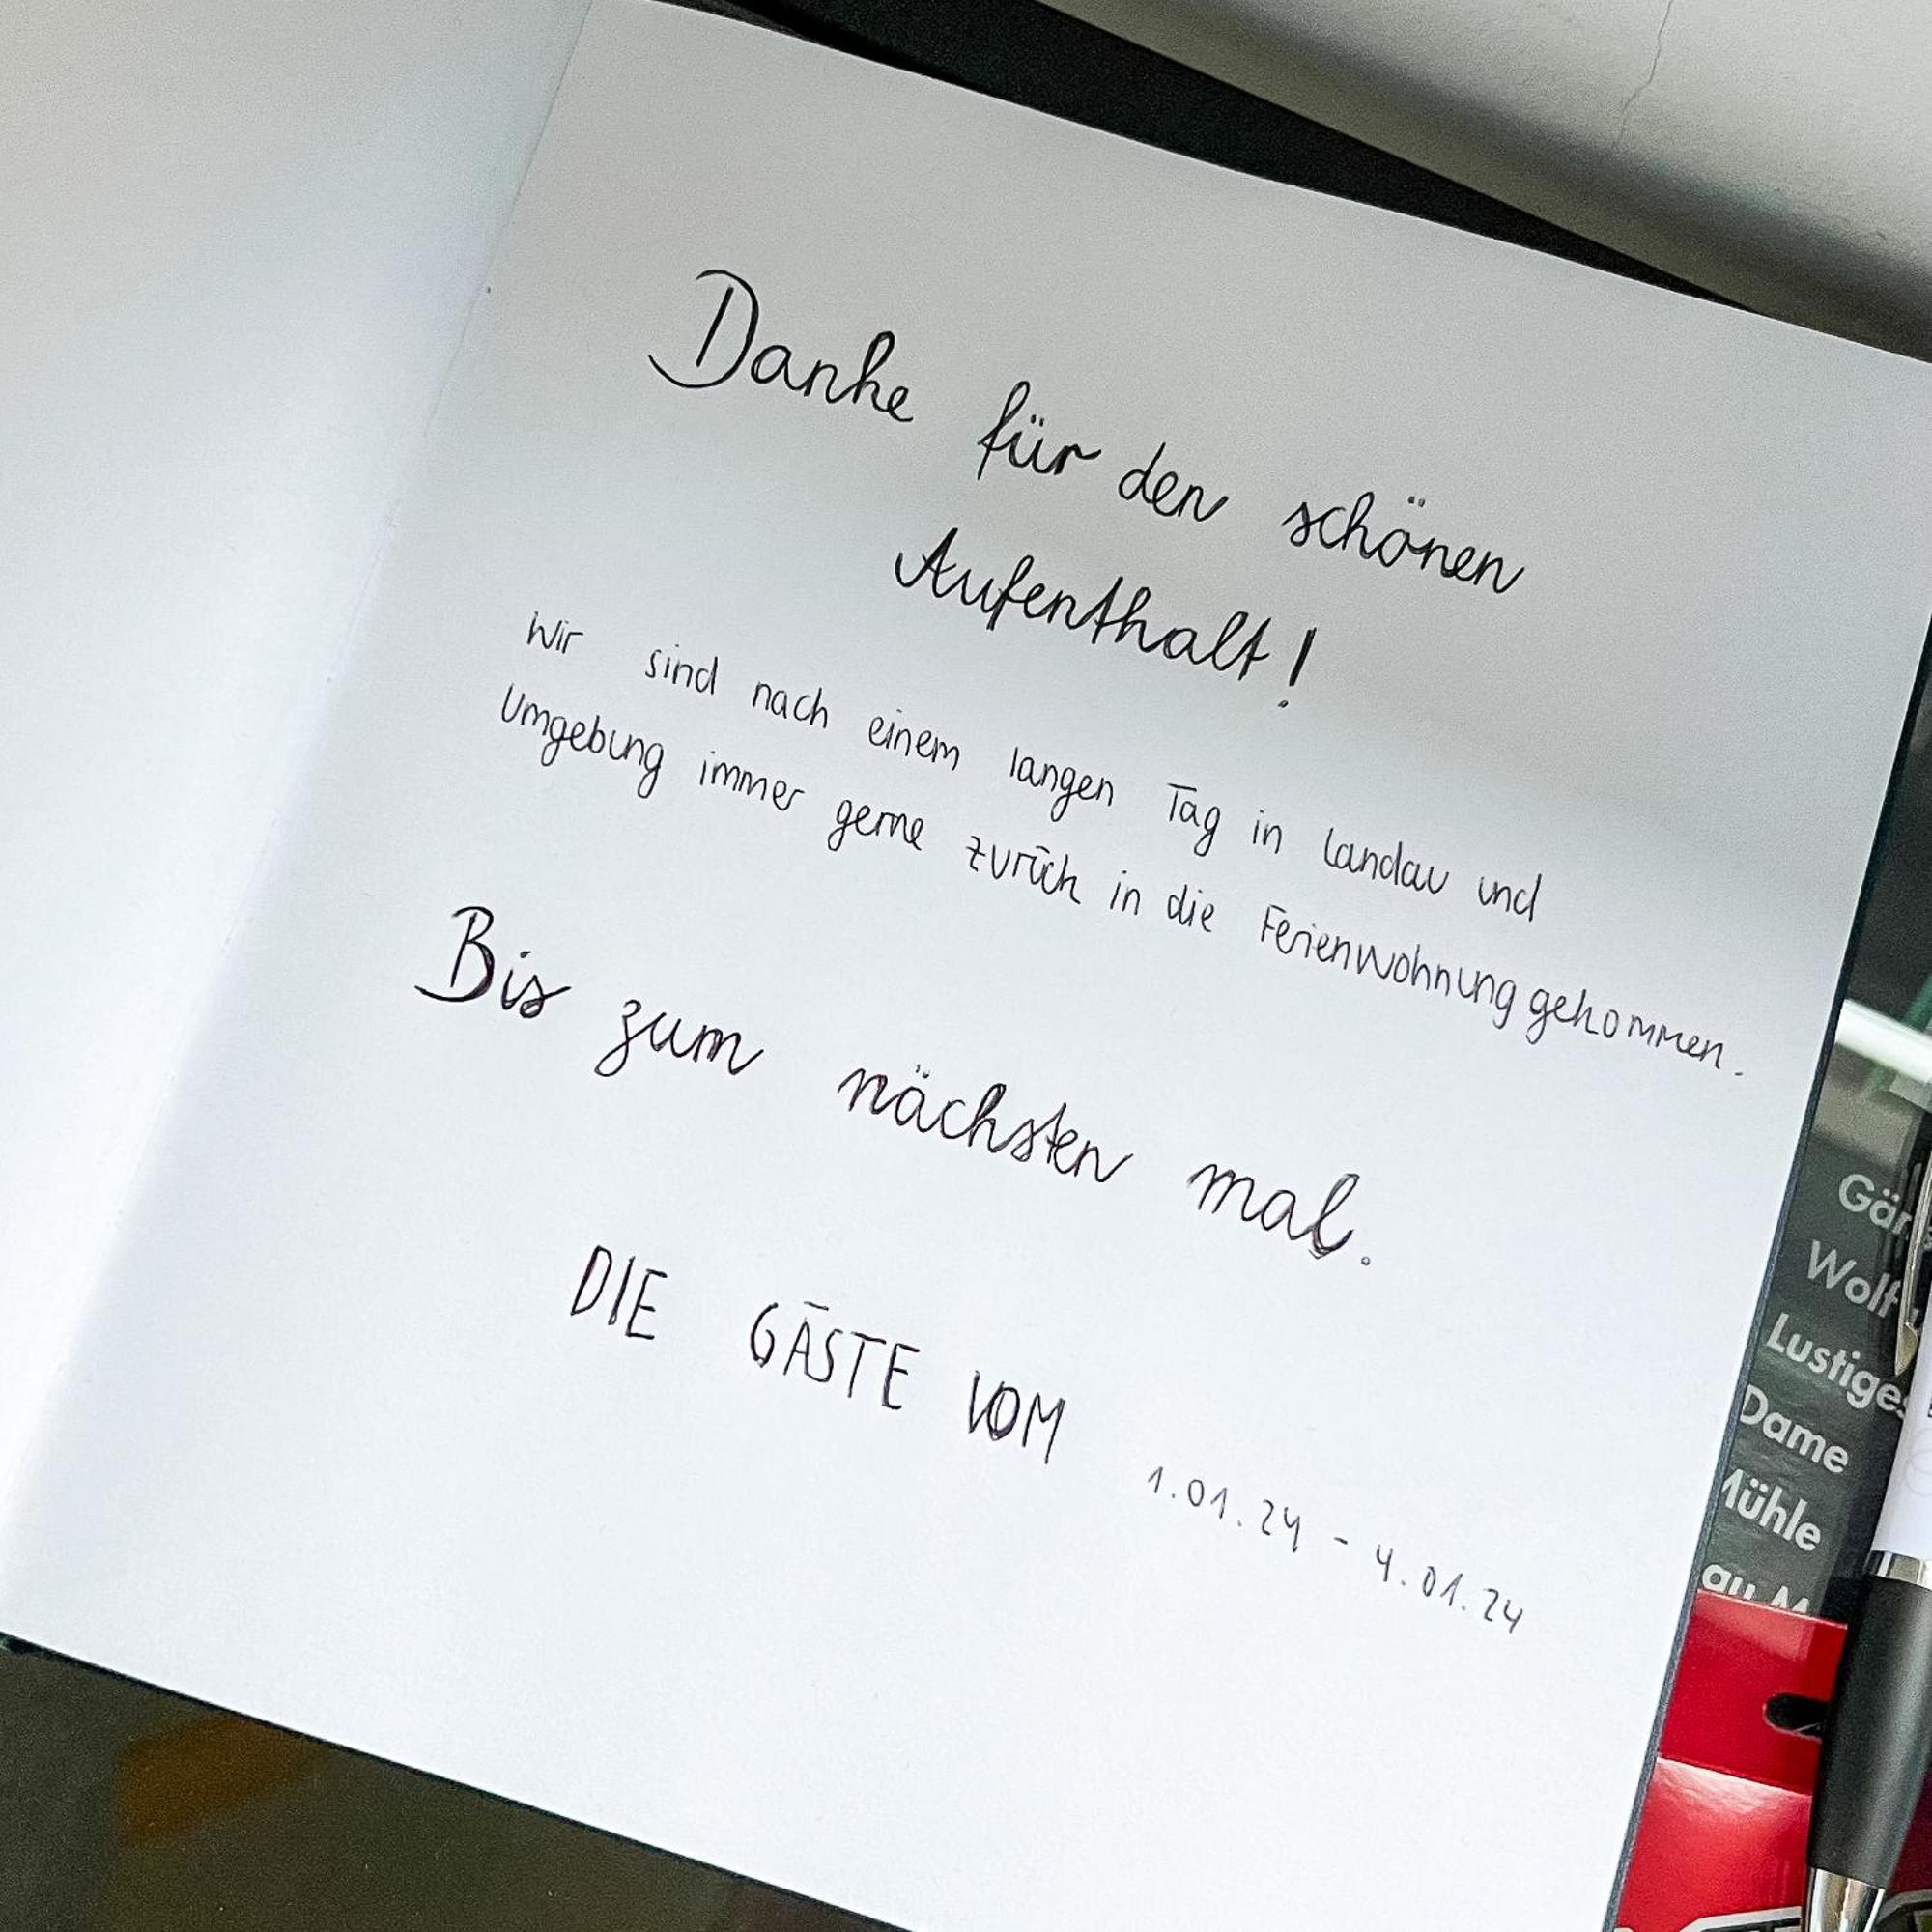 Danke für den schönen
Aufenthalt!
Wir sind nach einem langen Tag in Landau und
Umgebung immer gerne zurück in die Ferienwohnung gekommen.
Bis zum nächsten mal.
DIE GÄSTE VOM 1.01.24 - 4.01.24
Lustiges
Dame